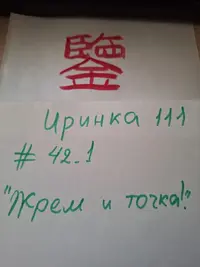 鑒
Иринка 111
# 42.1
"Жрем и точка!"